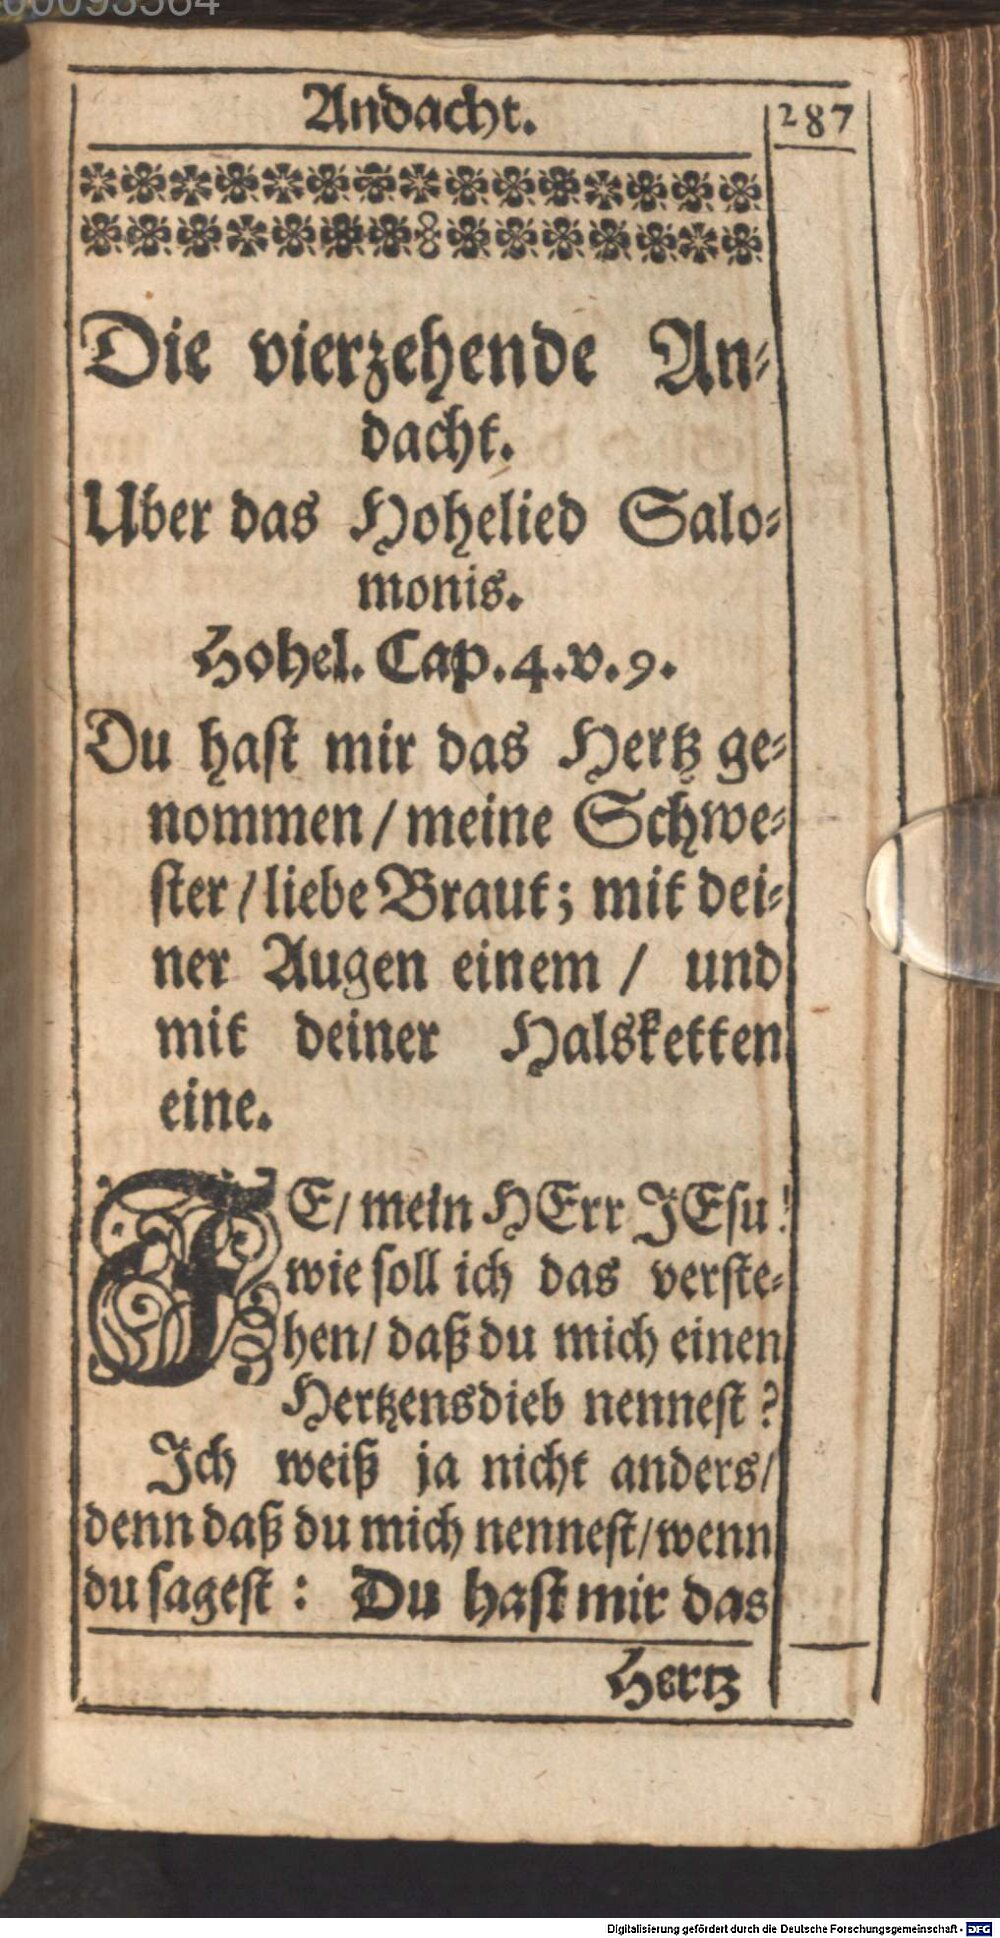 Andacht.
287
Die vierzehende An-
dacht.
Uber das Hohelied Salo-
monis.
Hohel. Cap. 4. v. 9.
Du hast mir das Hertz ge-
nommen / meine Schwe-
ster / liebe Braut; mit dei-
ner Augen einem / und
mit deiner Halsketten
eine.
JE / mein HErr JEsu!
wie soll ich das verste-
hen / daß du mich einen
Hertzensdieb nennest?
Ich weiß ja nicht anders /
denn daß du mich nennest / wenn
du sagest: Du hast mir das
Hertz
Digitalisierung gefördert durch die Deutsche Forschungsgemeinschaft - DFG